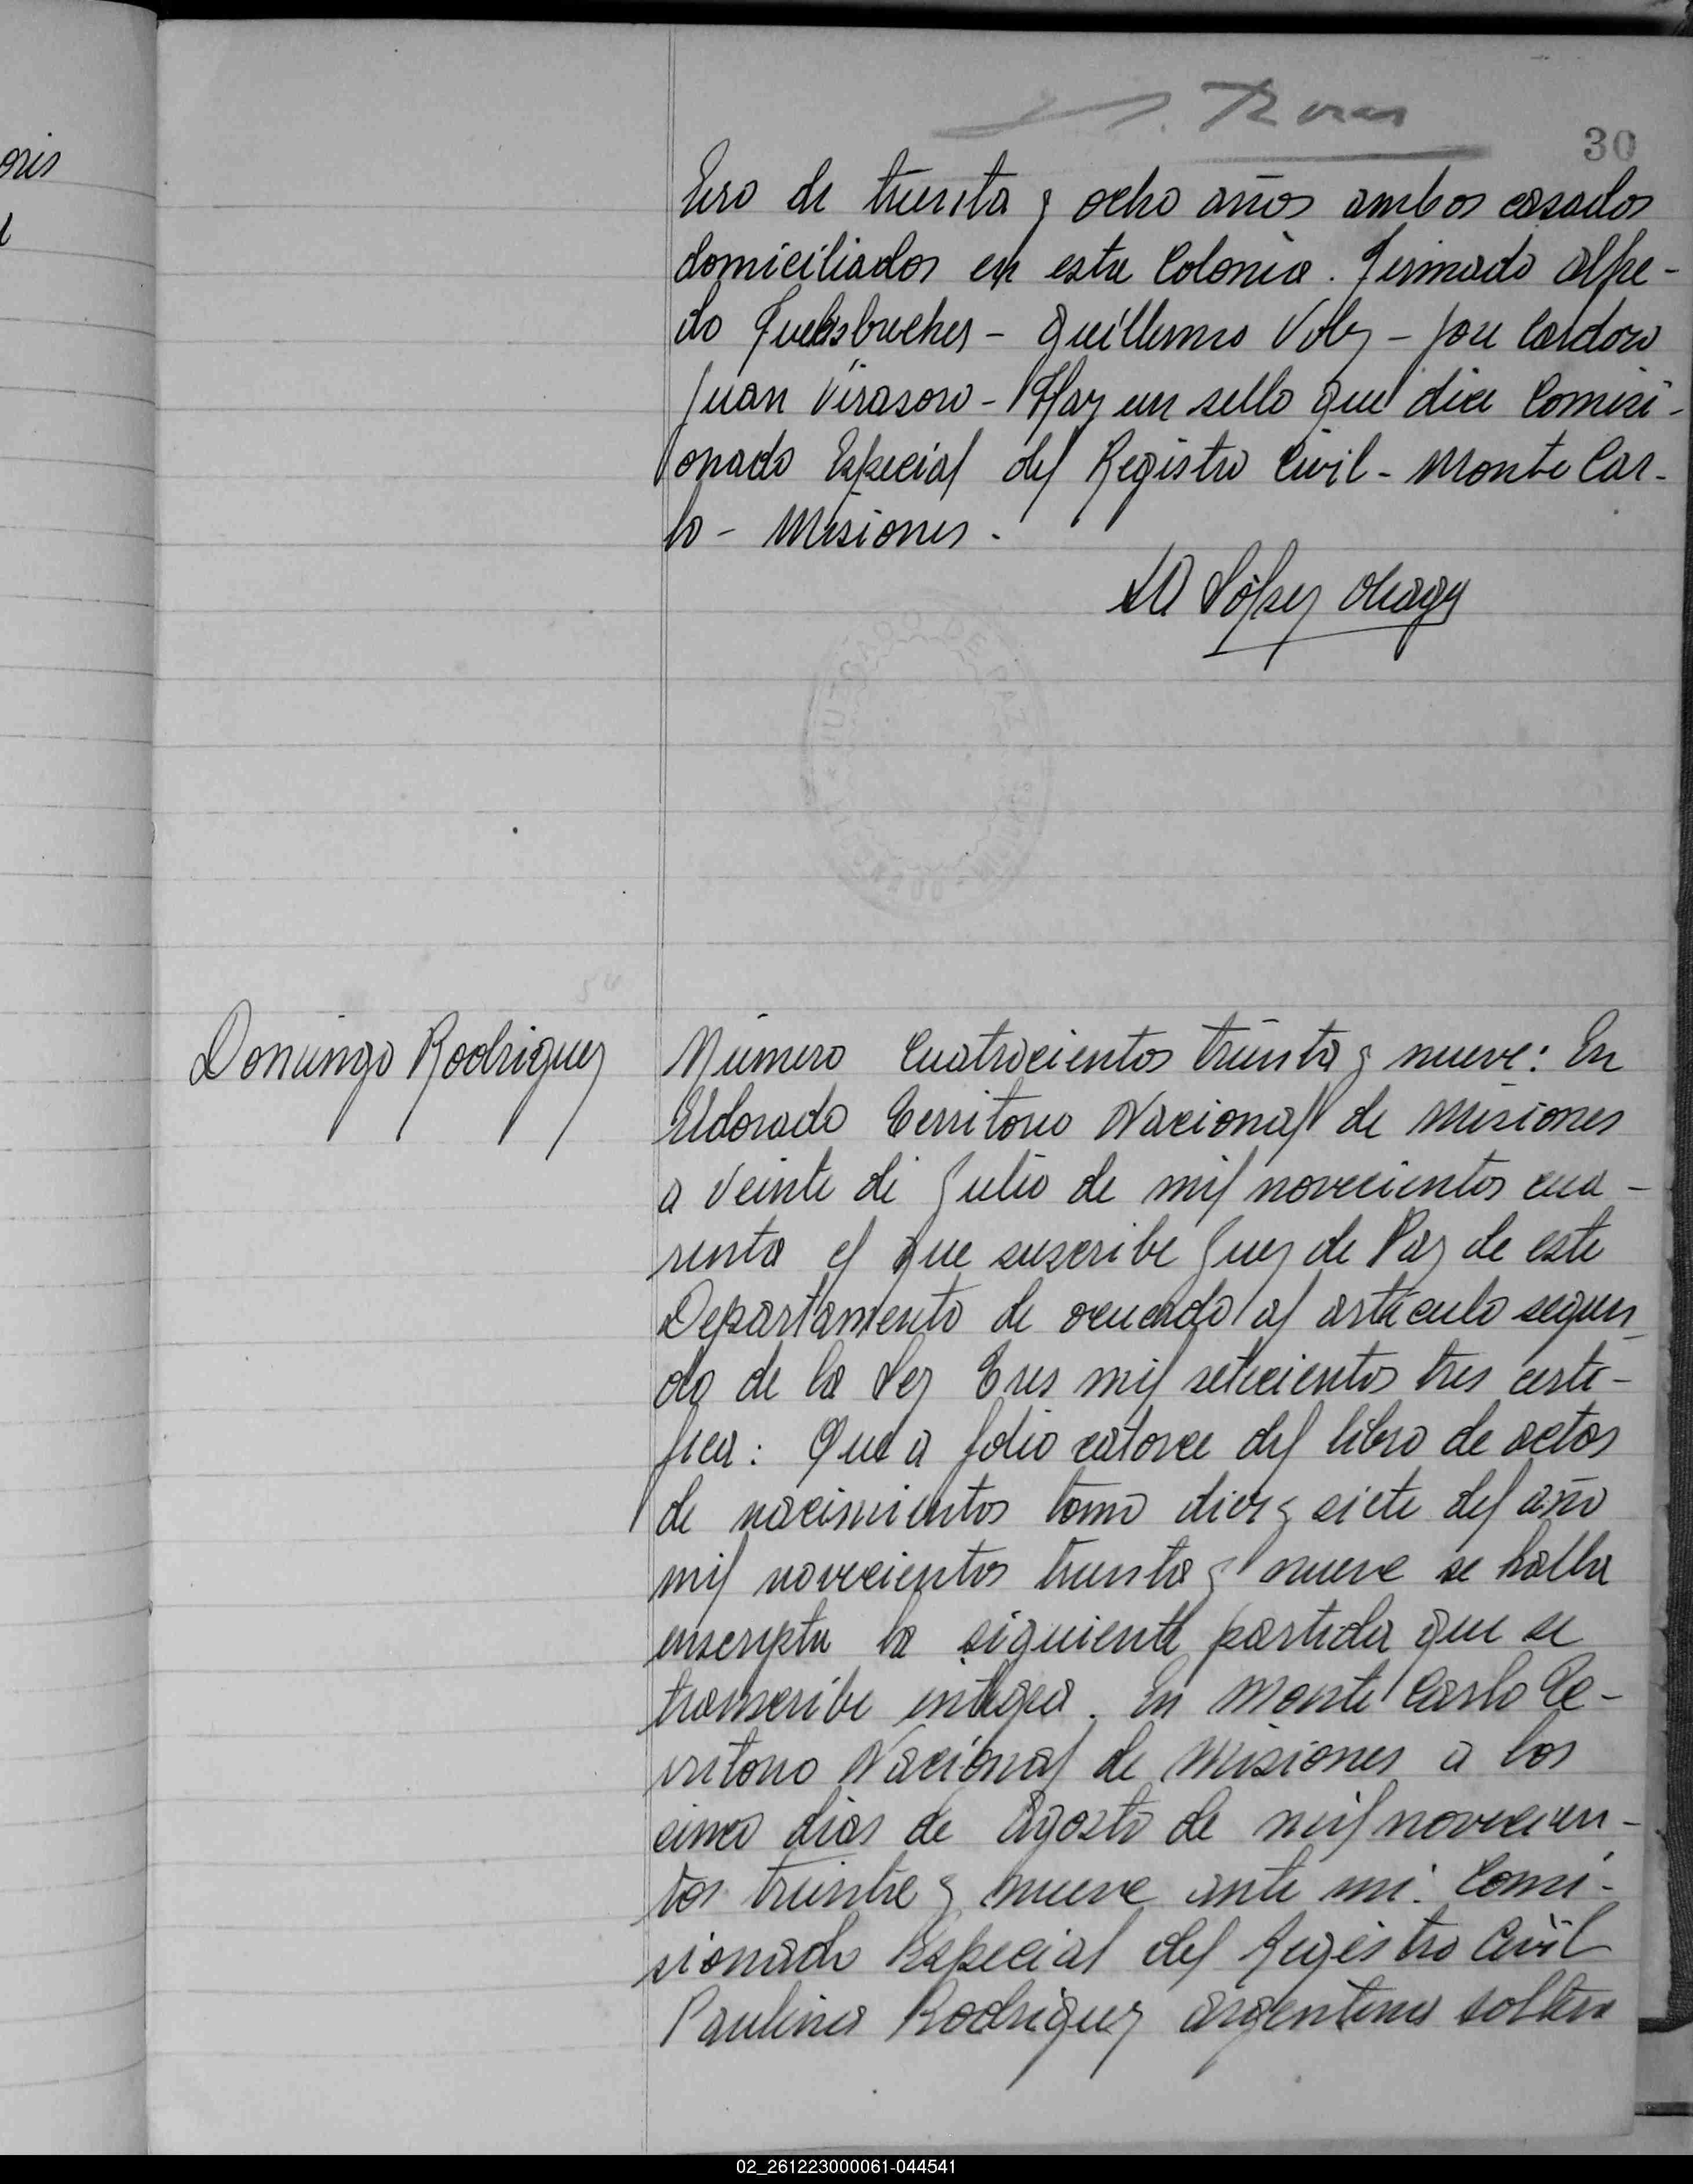 30
dero de treinta y ocho años ambos casados
domiciliados en esta Colonia. Firmado Alfre-
do - Guillermo Volz - José Cardozo
Juan Virasoro - Hay un sello que dice Comisi-
onado Especial del Registro Civil - Monte Car-
lo - Misiones.
López
Domingo Rodriguez
Número Cuatrocientos treinta y nueve: En
Eldorado Territorio Nacional de Misiones
a veinte de Julio de mil novecientos cua-
renta el que suscribe Juez de Paz de este
Departamento de acuerdo al artículo segun
do de la Ley Tres mil setecientos tres certi-
fica: Que a folio catorce del libro de actas
de nacimientos tomo diez y siete del año
mil novecientos treinta y nueve se halla
inscripta la siguiente partida que se
transcribe integra. En Monte Carlo Te-
rritorio Nacional de Misiones a los
cinco dias de Agosto de mil novecien-
tos treinta y nueve ante mi: Comi-
sionado Especial del Registro Civil
Paulina Rodriguez argentina soltera
02_261223000061-044541